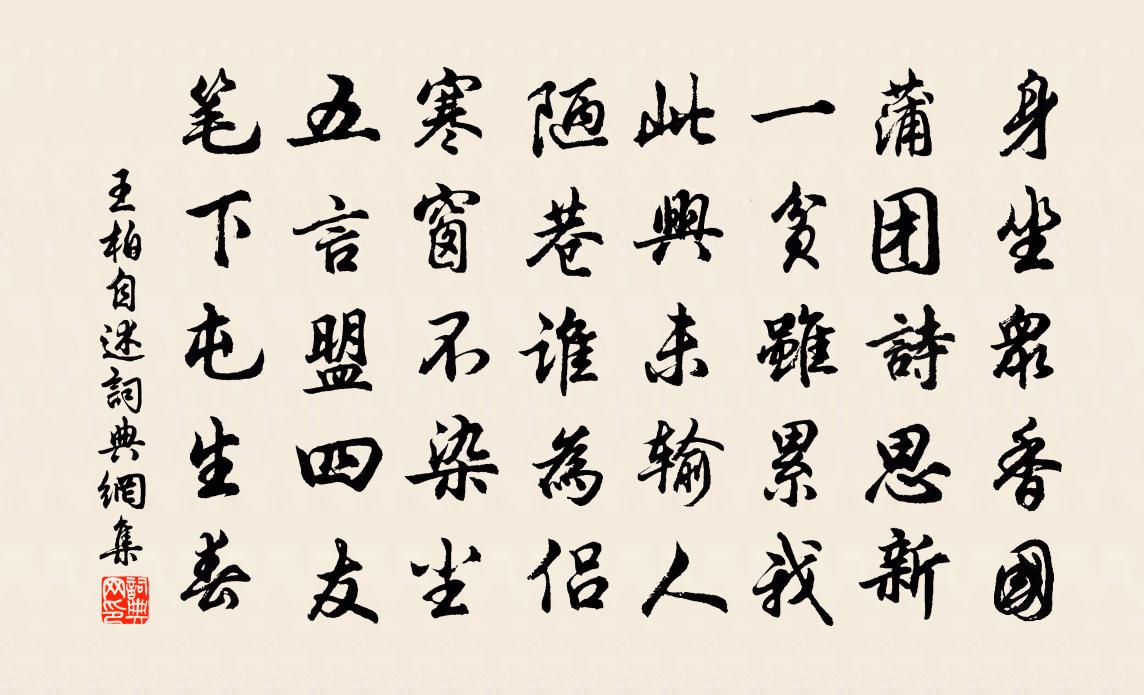 身坐眾香國
蒲团詩思新
一貧雖累我
此興未输人
陋巷谁為侣
寒窗不染尘
五言盟四友
笔下屯生春
王柏自述詞典網集
詞典网印